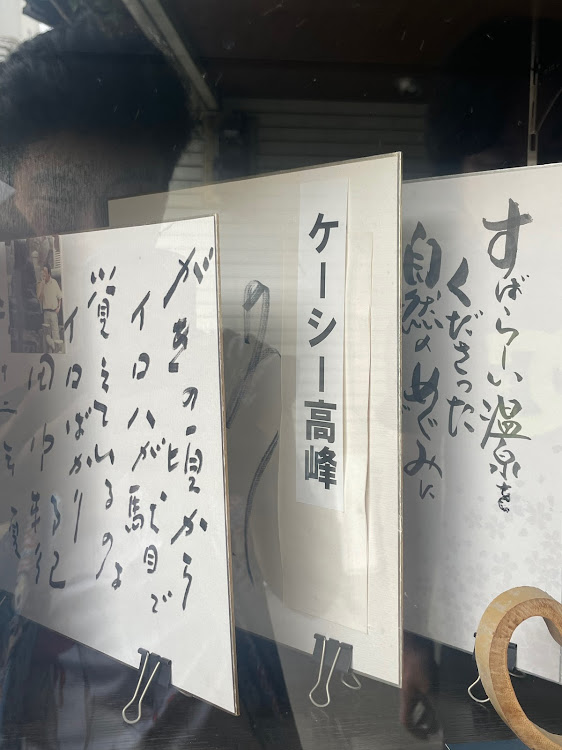 すばらしい温泉を
くださった
自然のめぐみに
ケーシー高峰
がきの頃から
イロハが駄目で
覚えているのは
イロばかり
田中
十二年